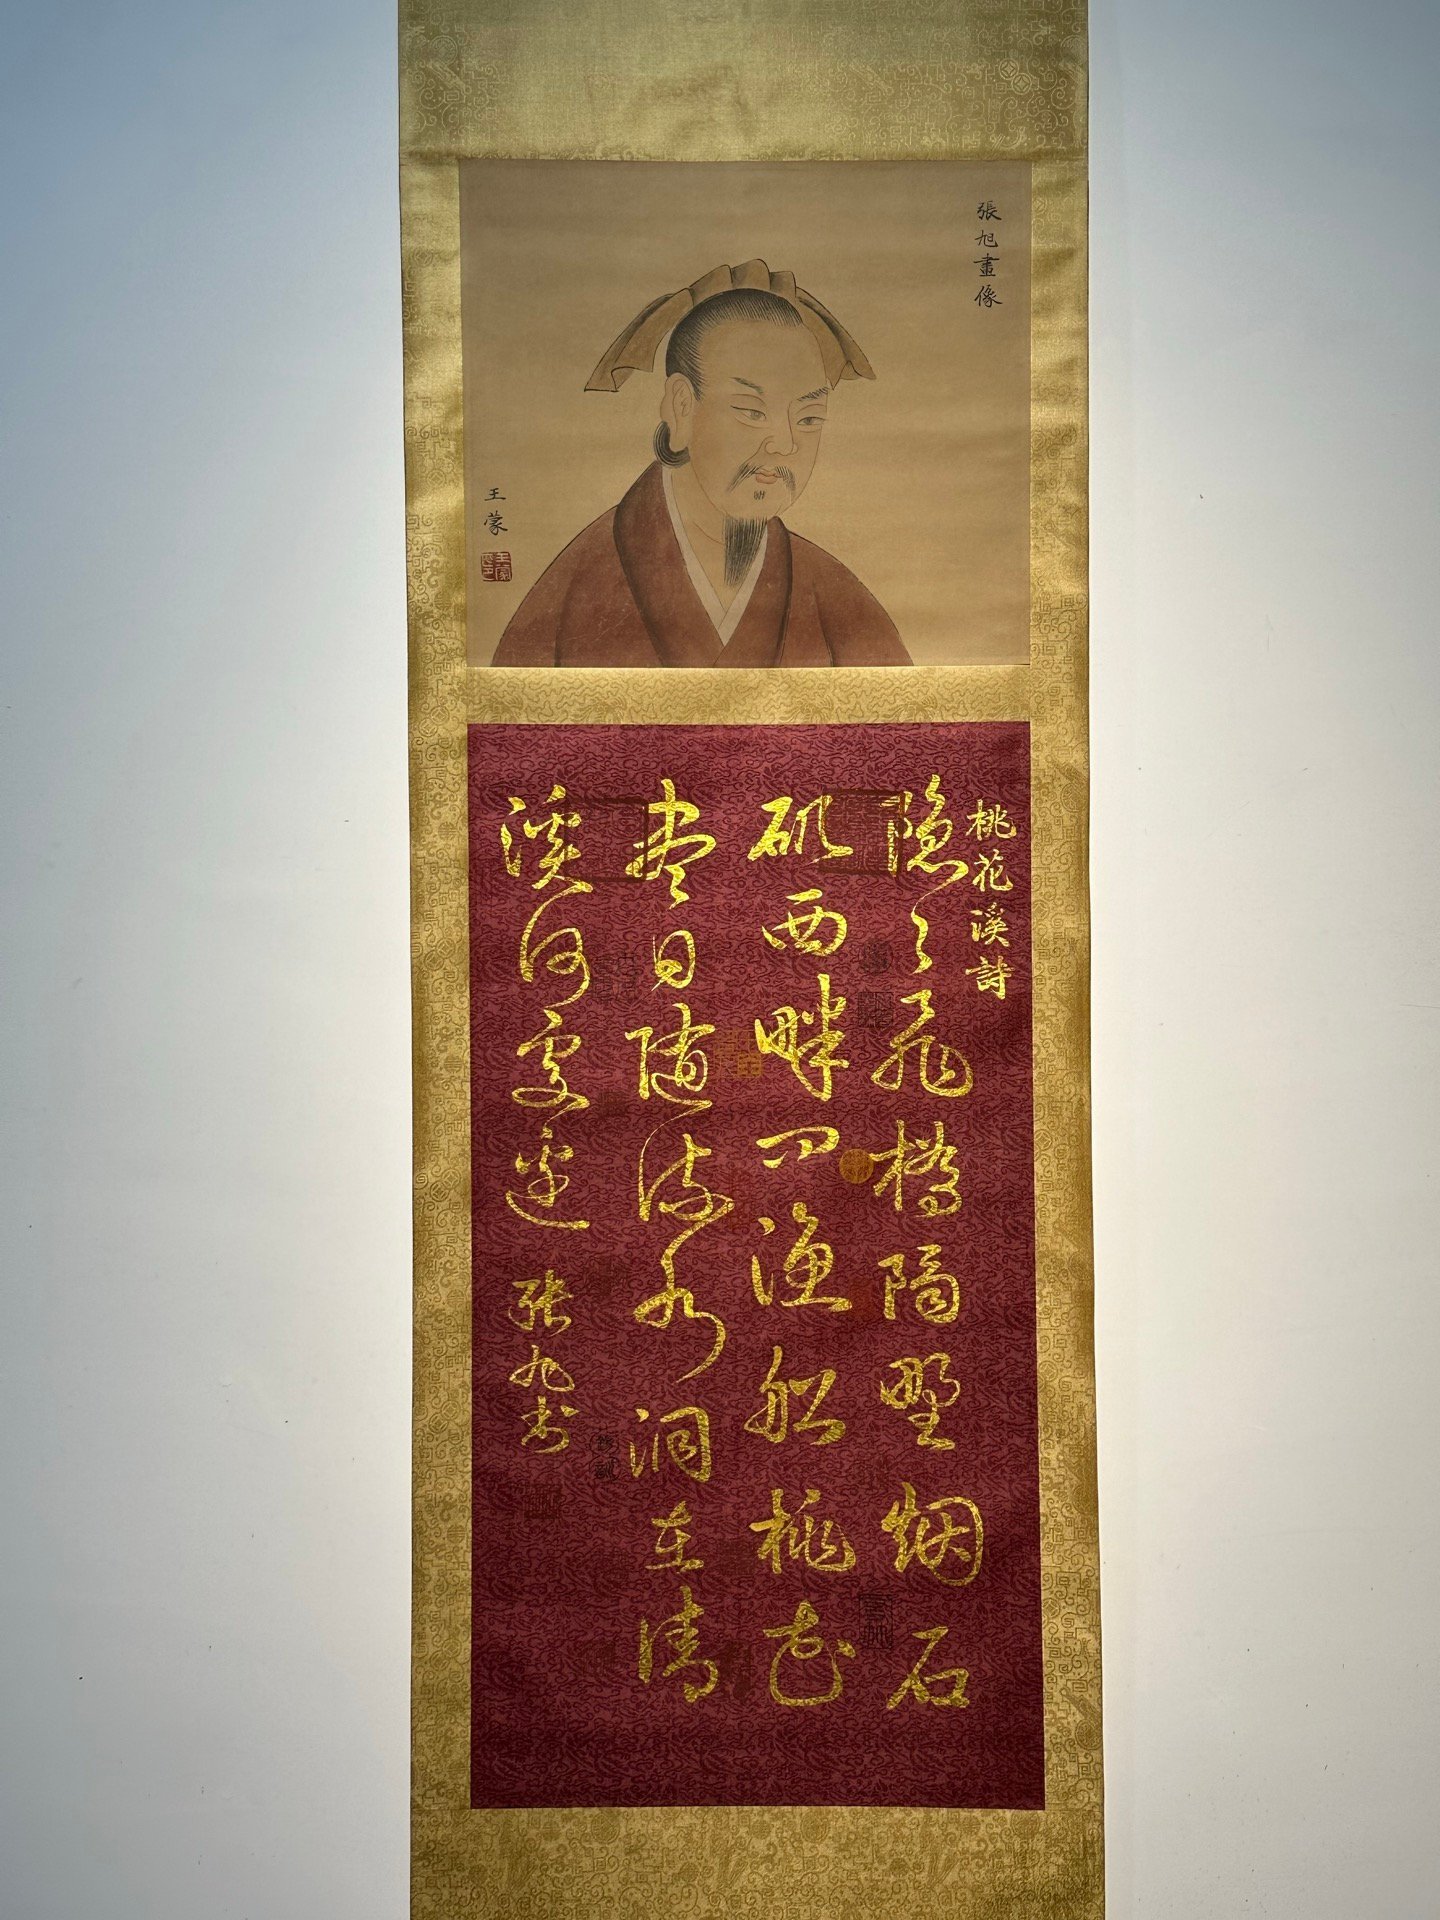 張旭畫像
王蒙
桃花溪詩
隐〻飛橋隔野烟石
矶西畔问漁船桃花
盡日随流水洞在清
溪何處邊 张旭书